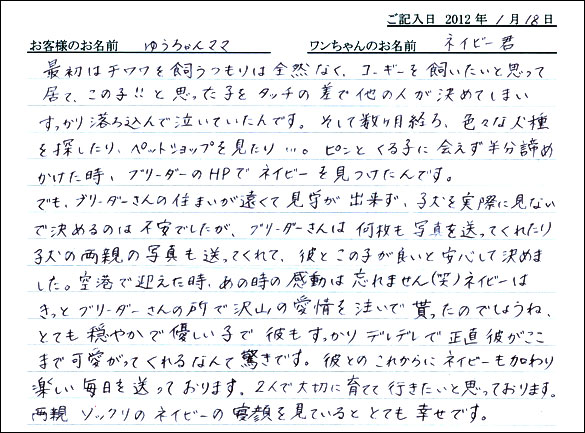 ご記入日 2012 年 1 月 18 日
お客様のお名前 ゆうちゃんママ ワンちゃんのお名前 ネイビー君
最初はチワワを飼うつもりは全然なく、コーギーを飼いたいと思って
居て、この子!!と思った子をタッチの差で他の人が決めてしまい
すっかり落ち込んで泣いていたんです。そして数ヶ月経ち、色々な犬種
を探したり、ペットショップを見たり…。ピンとくる子に会えず半分諦め
かけた時、ブリーダーのHPでネイビーを見つけたんです。
でも、ブリーダーさんの住まいが遠くて見学が出来ず、子犬を実際に見ない
で決めるのは不安でしたが、ブリーダーさんは何枚も写真を送ってくれたり
子犬の両親の写真も送ってくれて、彼とこの子が良いと安心して決めま
した。空港で迎えた時、あの時の感動は忘れません(笑)ネイビーは
きっとブリーダーさんの所で沢山の愛情を注いで貰ったのでしょうね、
とても穏やかで優しい子で彼もすっかりデレデレで正直彼がここ
まで可愛がってくれるなんて驚きです。彼とのこれからにネイビーも加わり
楽しい毎日を送っております。2人で大切に育てて行きたいと思っております。
両親ソックリのネイビーの寝顔を見ているととても幸せです。